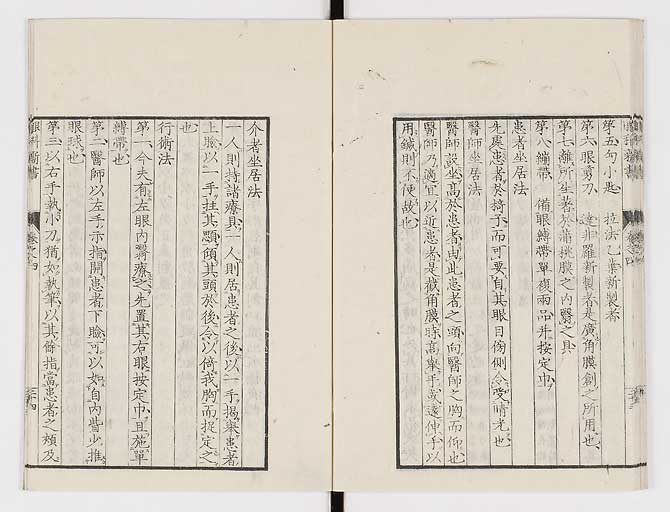 第五勾小匙　拉法乙葉新製者
第六眼剪刀　達非羅新製者是廣角膜創之所用也
第七離所生著於蒲桃膜之内翳之具
第八繃帶　備眼縛帶單複兩品并按定巾
患者坐居法
先處患者於椅子而可要自其眼目傍側令受晴光也
醫師坐居法
醫師設坐高於患者由此患者之頭向醫師之胸而仰也
醫師乃適宜以近患者是截角膜時高舉手或遠伸手以
用鍼則不便故也
介者坐居法
一人則持諸療具一人則居患者之後以一手揭舉患者
上瞼以一手拄其顋傾其頭於後令以倚我胸而捉定之
也
行術法
第一今夫有左眼内翳療之先置其右眼按定巾且施單
縛帶也
第二醫師以左手示指開患者下瞼可以如自内眥少推
眼球也
第三以右手執小刀猶如執筆以其餘指當患者之頬及
眼科新書
卷之四